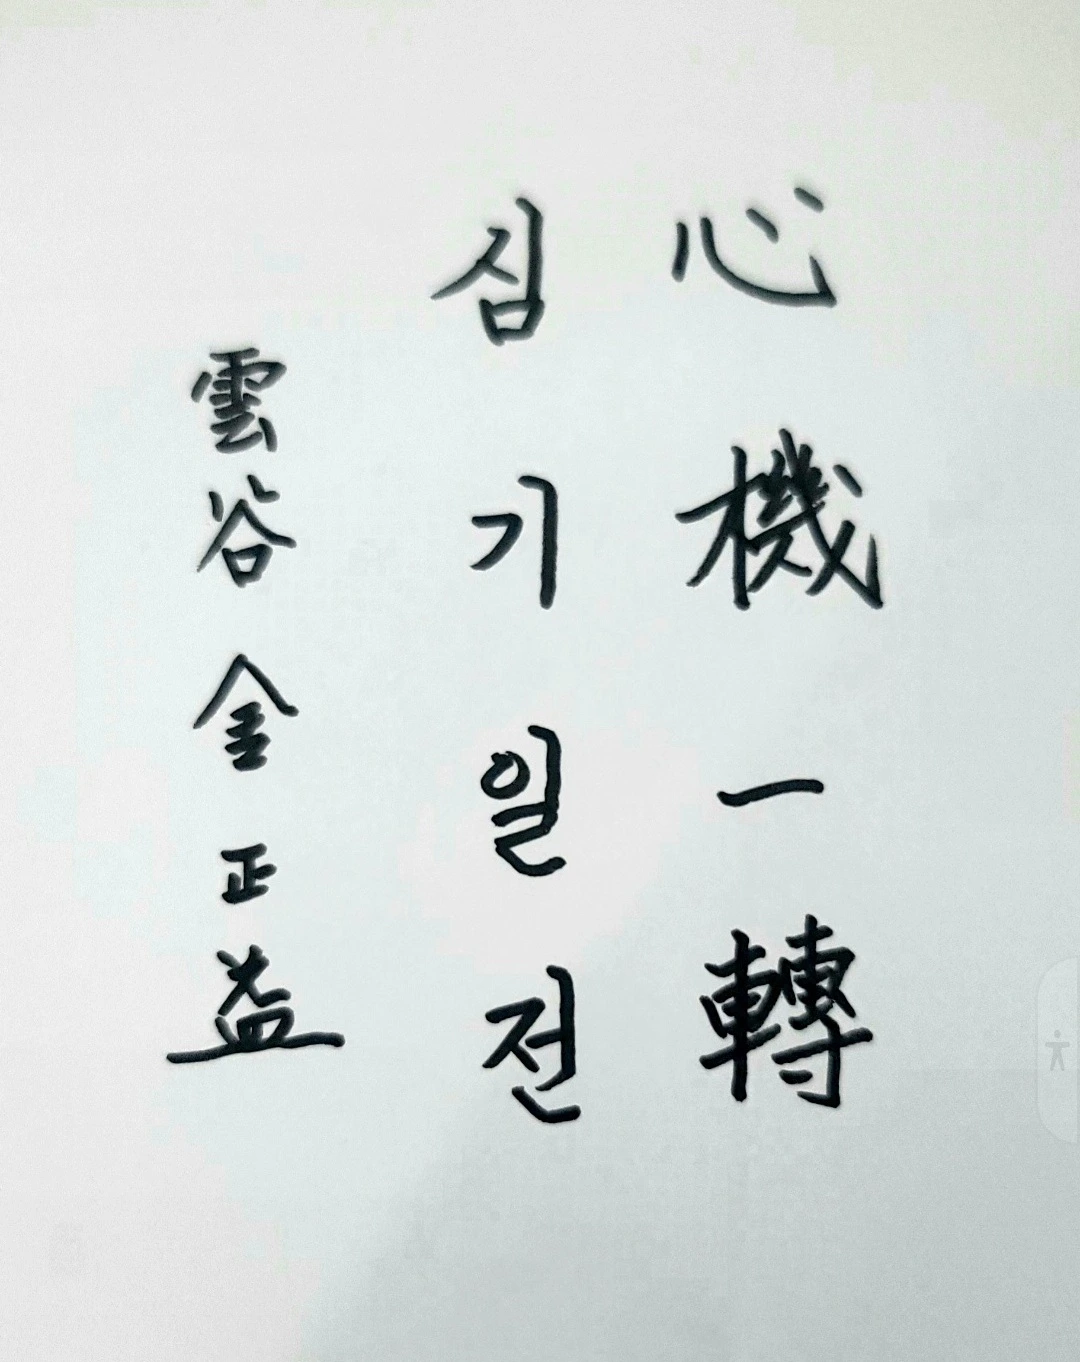 心機一轉
심기일전
雲谷 金正益